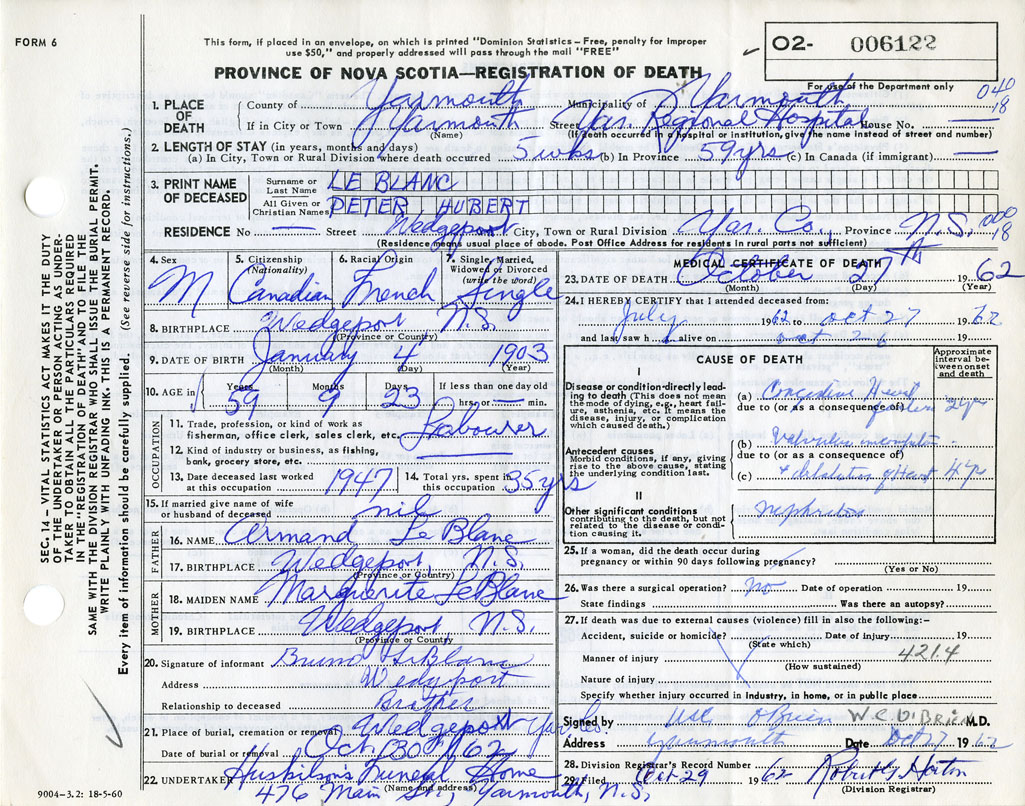 FORM 6
This form, if placed in an envelope, on which is printed "Dominion Statistics – Free, penalty for improper
use $50," and properly addressed will pass through the mail "FREE"
O2- 006122
For use of the Department only
PROVINCE OF NOVA SCOTIA—REGISTRATION OF DEATH
040
18
1. PLACE OF DEATH County of Yarmouth Municipality of Yarmouth
If in City or Town Yarmouth Street Yar. Regional Hospital House No. —
(Name) (If death occurred in a hospital or institution, give the name instead of street and number)
2. LENGTH OF STAY (in years, months and days)
(a) In City, Town or Rural Division where death occurred 5 wks (b) In Province 59 yrs (c) In Canada (if immigrant) —
3. PRINT NAME OF DECEASED Surname or Last Name LE BLANC
All Given or Christian Names PETER HUBERT
RESIDENCE No — Street Wedgeport City, Town or Rural Division Yar. Co., Province N.S.
000
18
(Residence means usual place of abode. Post Office Address for residents in rural parts not sufficient)
SEC. 14 – VITAL STATISTICS ACT MAKES IT THE DUTY
OF THE UNDERTAKER OR PERSON ACTING AS UNDER-
TAKER TO OBTAIN ALL THE PARTICULARS REQUIRED
IN THE "REGISTRATION OF DEATH" AND TO FILE THE
SAME WITH THE DIVISION REGISTRAR WHO SHALL ISSUE THE BURIAL PERMIT.
WRITE PLAINLY WITH UNFADING INK. THIS IS A PERMANENT RECORD.
Every item of information should be carefully supplied. (See reverse side for instructions.)
4. Sex M
5. Citizenship (Nationality) Canadian
6. Racial Origin French
7. Single, Married, Widowed or Divorced (write the word) Single
8. BIRTHPLACE Wedgeport N.S.
(Province or Country)
9. DATE OF BIRTH January 4 1903
(Month) (Day) (Year)
10. AGE in Years 59 Months 9 Days 23 If less than one day old
hrs. or — min.
OCCUPATION
11. Trade, profession, or kind of work as
fisherman, office clerk, sales clerk, etc. Labourer
12. Kind of industry or business, as fishing,
bank, grocery store, etc.
13. Date deceased last worked at this occupation 1947
14. Total yrs. spent in this occupation 35 yrs
15. If married give name of wife
or husband of deceased nil
FATHER
16. NAME Armand Le Blanc
17. BIRTHPLACE Wedgeport, N.S.
(Province or Country)
MOTHER
18. MAIDEN NAME Marguerite LeBlanc
19. BIRTHPLACE Wedgeport N.S.
(Province or Country
20. Signature of informant Bruno LeBlanc
Address Wedgeport
Relationship to deceased Brother
21. Place of burial, cremation or removal Wedgeport Yar. Co.
Date of burial or removal Oct 30th 62
22. UNDERTAKER Huskilson's Funeral Home
(Name and address)
476 Main St., Yarmouth, N.S.
9004–3.2: 18-5-60
MEDICAL CERTIFICATE OF DEATH
23. DATE OF DEATH October 27TH 1962
(Month) (Day) (Year)
24. I HEREBY CERTIFY that I attended deceased from:
July 1962 to Oct 27 1962
and last saw h alive on Oct 26 19
CAUSE OF DEATH
Approximate interval between onset and death
I
Disease or condition-directly leading to death (This does not mean the mode of dying, e.g., heart failure, asthenia, etc. It means the disease, injury, or complication which caused death.)
(a) Congestive Heart
due to (or as a consequence of) 2 yr
Antecedent causes
Morbid conditions, if any, giving rise to the above cause, stating the underlying condition last.
(b) Valvular
due to (or as a consequence of)
(c) + dilatation of Heart 4 yr
II
Other significant conditions
contributing to the death, but not related to the disease or condition causing it.
nephritis
25. If a woman, did the death occur during
pregnancy or within 90 days following pregnancy?
(Yes or No)
26. Was there a surgical operation? no Date of operation 19
State findings Was there an autopsy?
27. If death was due to external causes (violence) fill in also the following:–
Accident, suicide or homicide? Date of injury 19
(State which)
Manner of injury 421.4
(How sustained)
Nature of injury
Specify whether injury occurred in industry, in home, or in public place
Signed by WC O'Brien W.C. O'BRIEN M.D.
Address Yarmouth Date Oct 27 1962
28. Division Registrar's Record Number
29. Filed Oct. 29 1962 Horton
(Division Registrar)